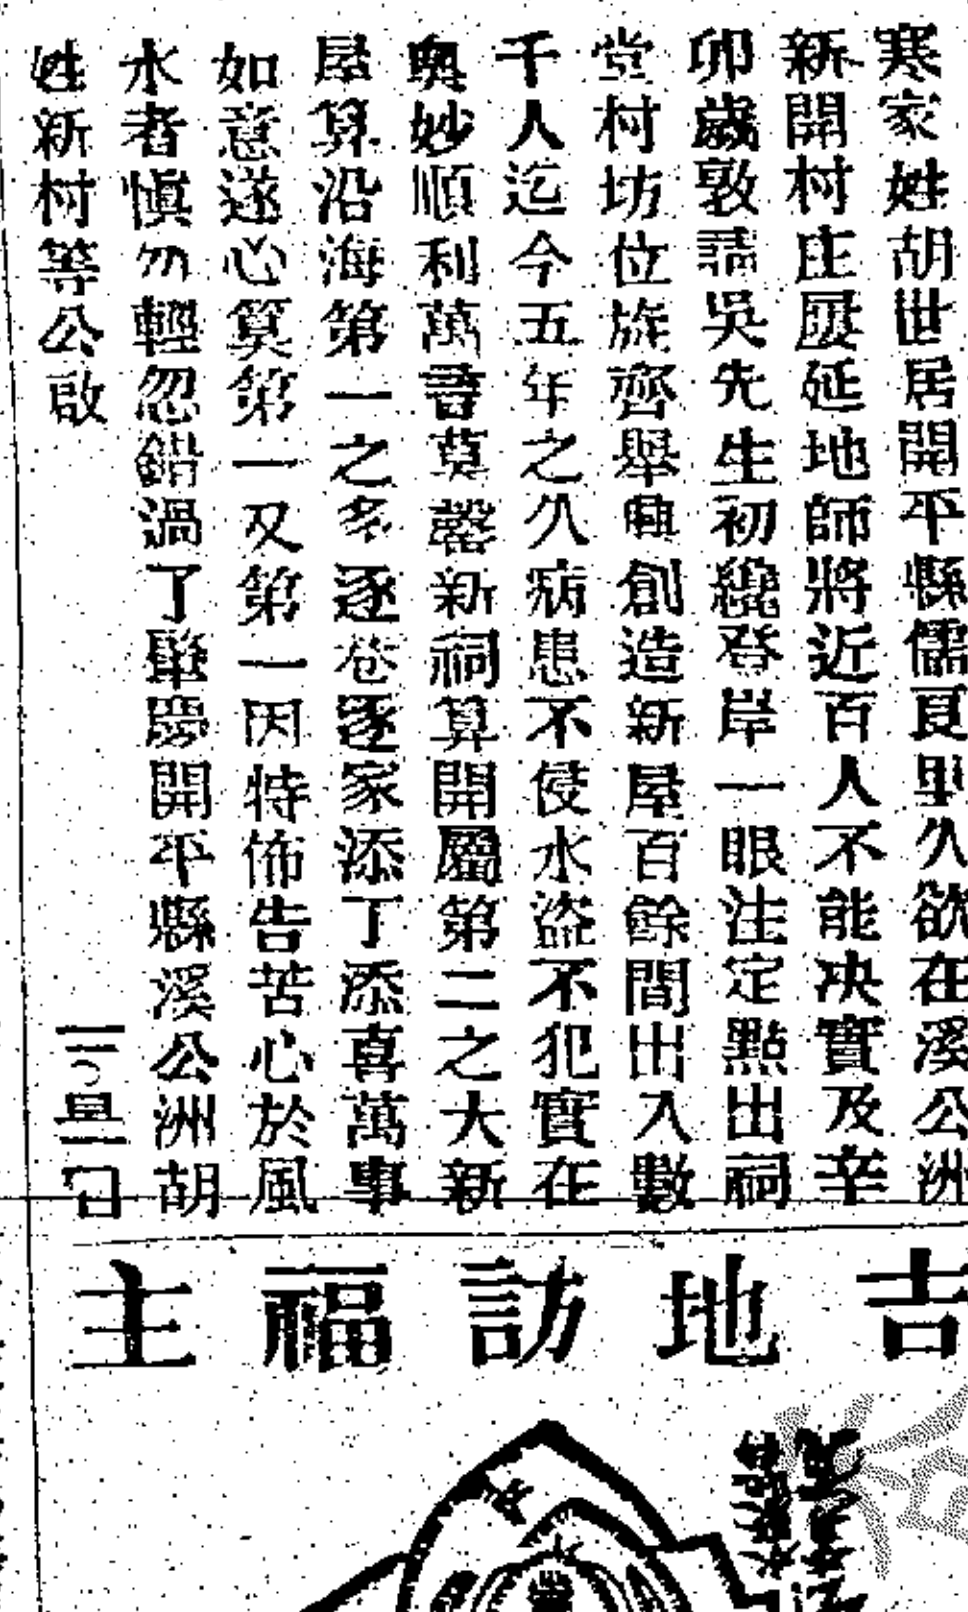 寒家姓胡世居開平縣儒良里久欲在溪公洲
新開村庄屢延地師將近百人不能决實及辛
卯歲敦請吳先生初纔登岸一眼注定點出祠
堂村坊位旋齊舉興創造新屋百餘間出入數
千人迄今五年之久病患不侵水盜不犯實在
奧妙順利萬書莫罄新祠算開屬第二之大新
屋算沿海第一之多逐巷逐家添丁添喜萬事
如意遂心算第一又第一因特佈告苦心於風
水者愼勿輕忽錯過了肇慶開平縣溪公洲胡
姓新村等公啟
吉地訪福主